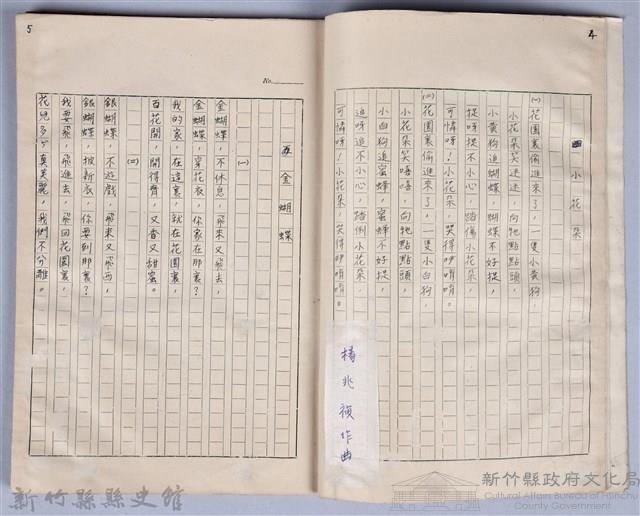 4
四 小花朵
(一)花園裏偷進來了,一隻小黃狗,
小花朵笑迷迷,向牠點點頭,
小黃狗追蝴蝶,蝴蝶不好捉,
捉呀捉不小心,踏傷小花朵,
可憐呀!小花朵,哭得咿唷唷。
(二)花園裏偷進來了,一隻小白狗,
小花朵笑嘻嘻,向牠點點頭,
小白狗追蜜蜂,蜜蜂不好捉,
追呀追不小心,踏倒小花朵,
可憐呀!小花朵,哭得咿唷唷。
楊兆禎作曲
5
No.
五 金蝴蝶
(一)
金蝴蝶,不休息,飛來又飛去,
金蝴蝶,穿花衣,你家在那裏?
我的家,在這裏,就在花園裏,
百花開,開得齊,又香又甜蜜。
(二)
銀蝴蝶,不遊戲,飛來又飛西,
銀蝴蝶,披新衣,你要到那裏?
我要飛,飛進去,飛回花園裏,
花兒多々真美麗,我們不分離。
新竹縣縣史館
新竹縣政府文化局
Cultural Affairs Bureau of Hsinchu
County Government